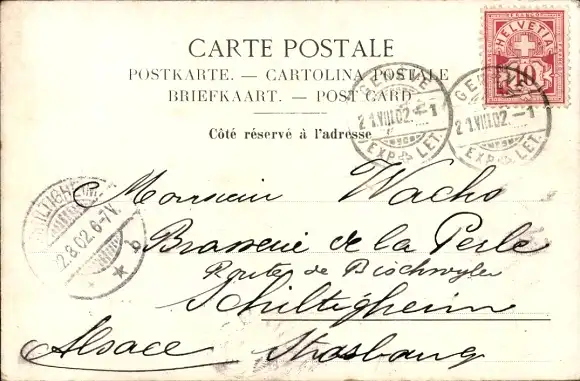 CARTE POSTALE
POSTKARTE. — CARTOLINA POSTALE
BRIEFKAART. — POST CARD
Côté réservé à l'adresse
HELVETIA
10
GENÈVE
21.VIII.02.–1
EXP. LET.
GENÈVE
21.VIII.02.–1
EXP. LET.
SCHILTIGHEIM
22.8.02. 6-7V.
* b
Monsieur Wachs
Brasserie de la Perle
Route de Bischwyler
Schiltigheim
Alsace Strasbourg